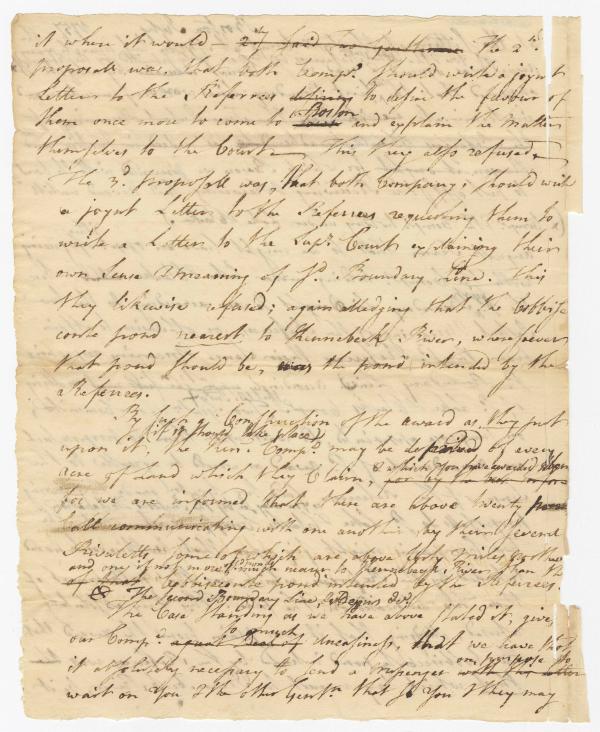 it where it would — 2dly said two Gentlemen The 2d.
proposall was, that both Compys. should write a joynt
Letter to the Referrees desiring to desire the favour of
them once more to come to Court Boston and explain the matter
themselves to the Court — This they also refused —
The 3d. proposall was, that both Companys should write
a joynt Letter to the Referrees requesting them to
write a Letter to the Supr. Court explaining their
own Sense & meaning of sd. Boundary Line. This
they likewise refused; again alledging that the Cobbise
conte pond nearest to Kennebeck River, wheresoever
that pond should be, was the pond intended by the
Referrees.
By such a Construction of the award as they put
(if it should take place)
upon it, the Ken. Compy. may be deprived of every
acre of Land which they Claim, & which you have awarded
for we are informed that there are above twenty
all communicating with one another by their several
Rivuletts, some of which are above forty miles
and one if not more of which much nearer to Kennebeck River than the
of that Cobbiseconte pond intended by the Referrees.
& The Second Boundary Line, & Begins &c
The Case standing as we have above stated it, gives
our Compy. a great Deal of so much uneasiness, that we have
it absolutely necessary to send a messenger with this letter on purpose to
wait on You & the other Gentn. that if You & they may